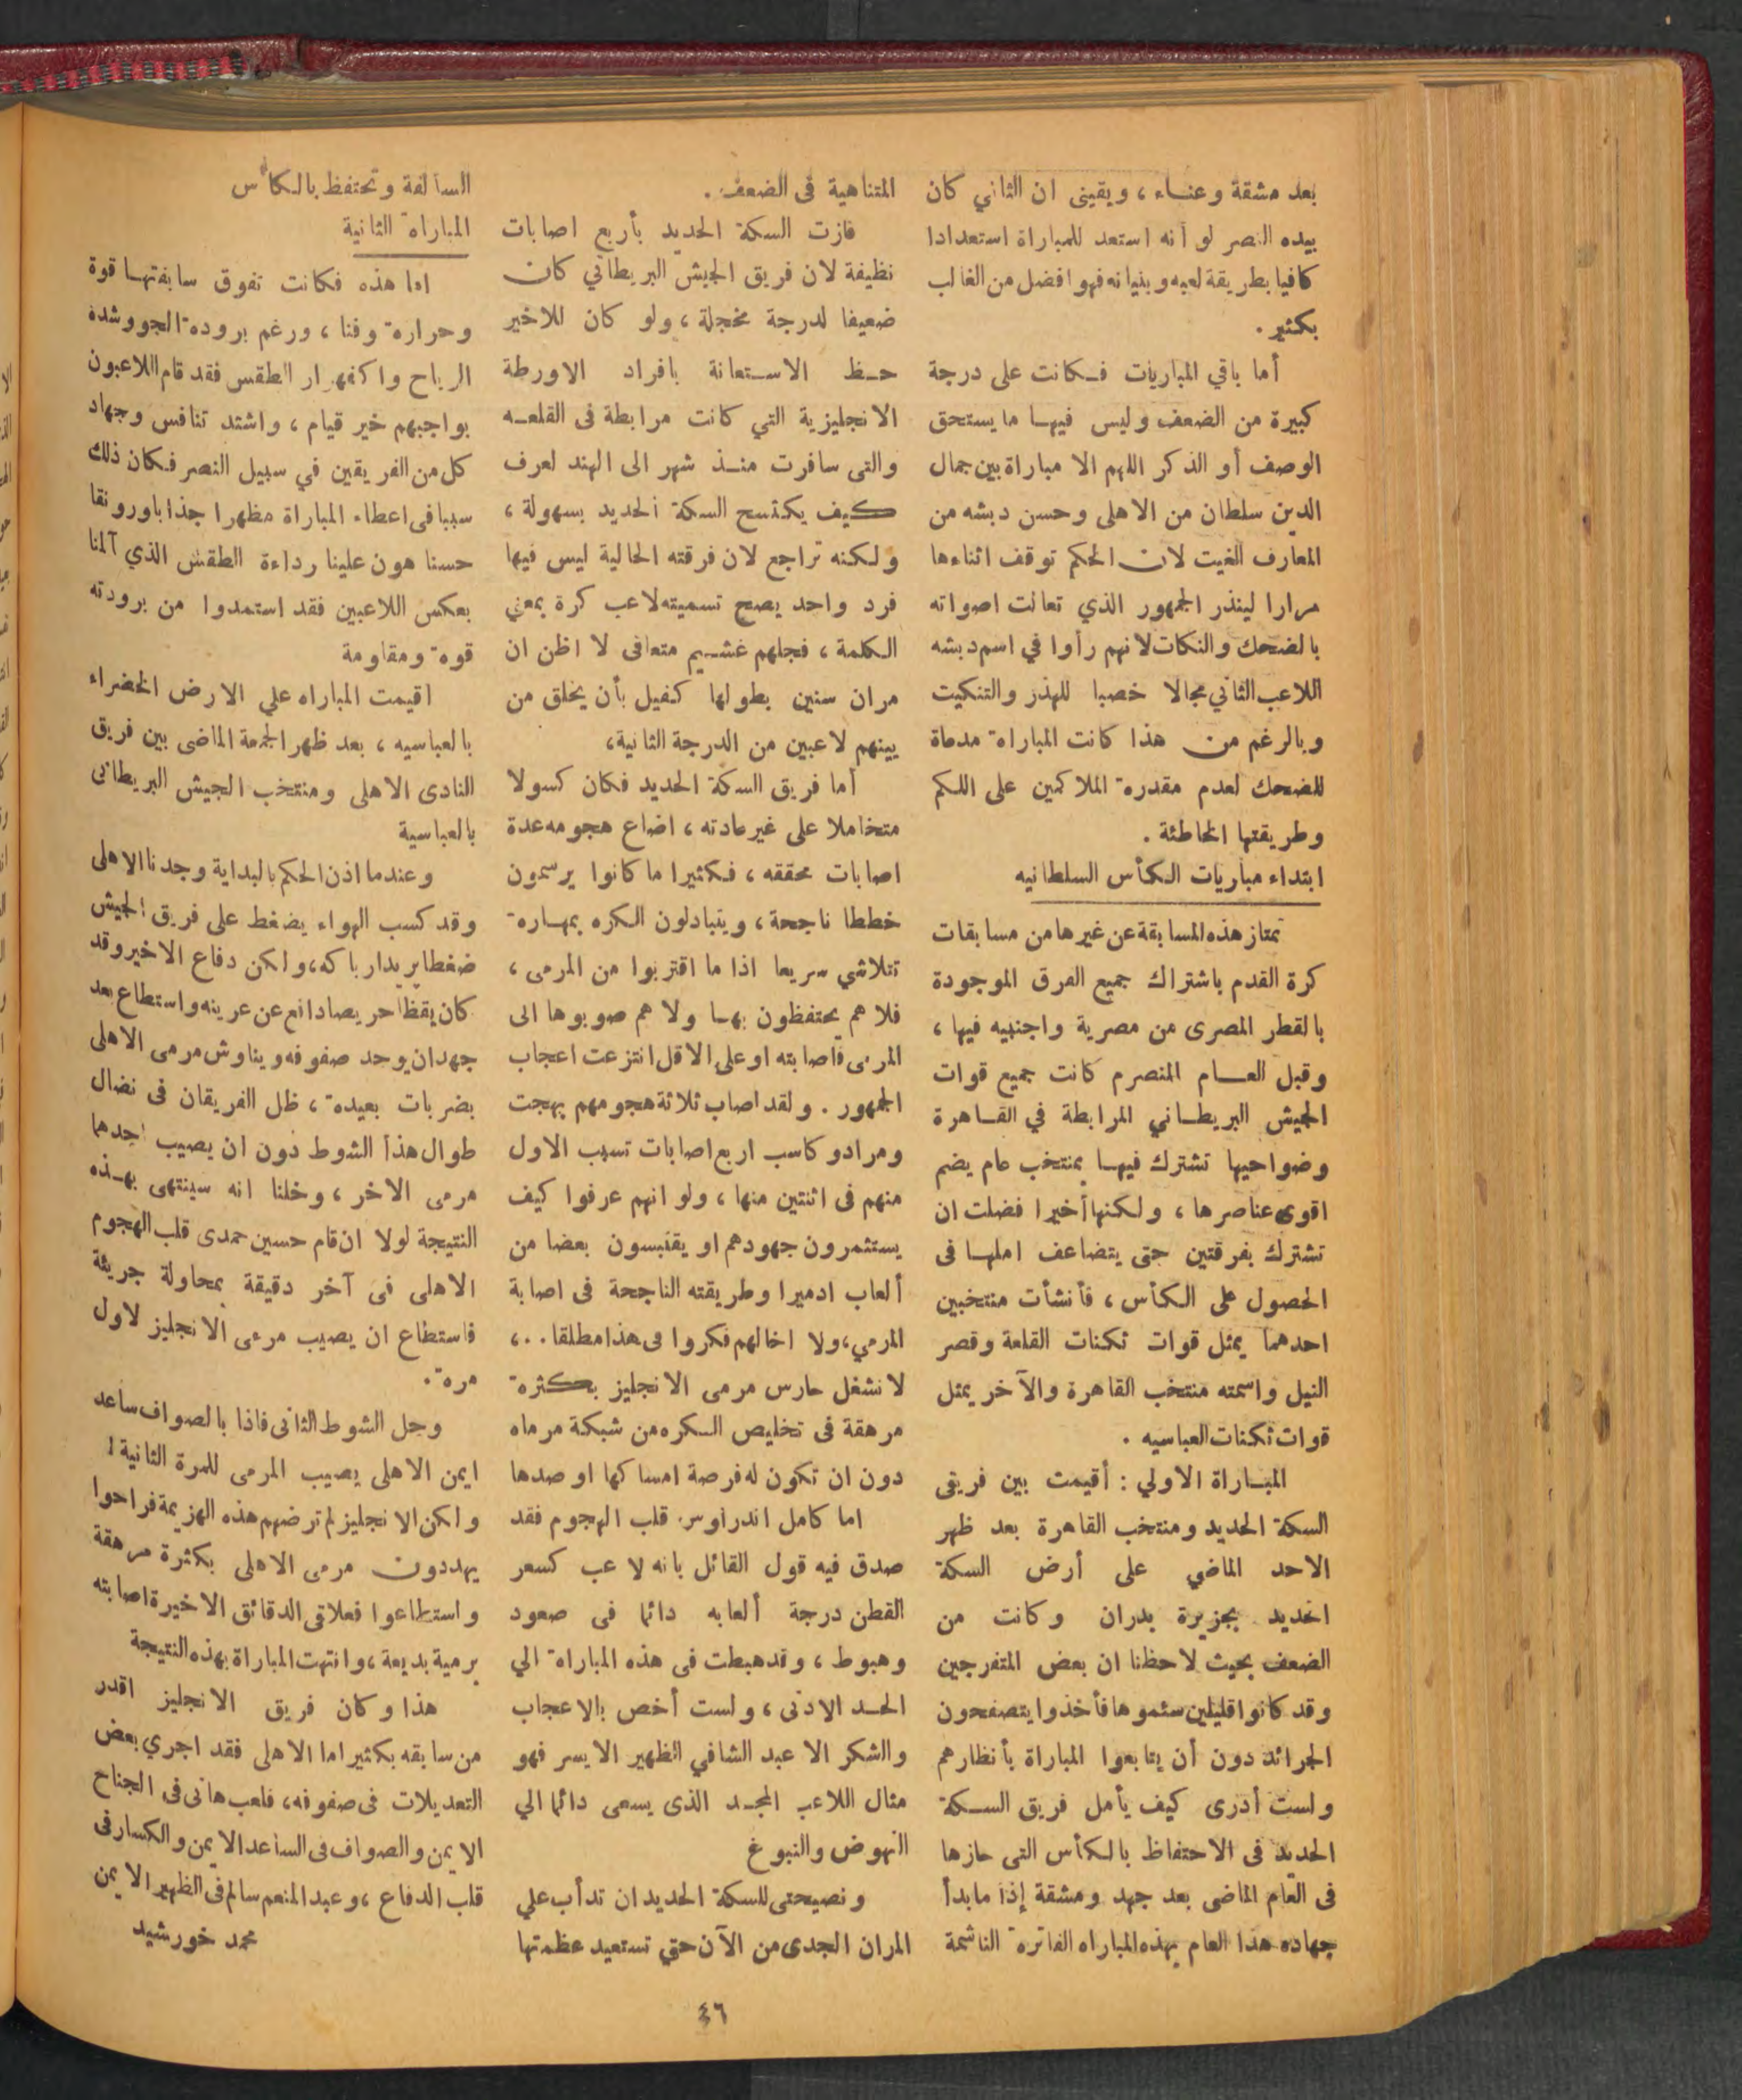 بعد مشقة وعناء ، ويقينى ان الثاني كان
بيده النصر لو أنه استعد للمباراة استعدادا
كافيا بطريقة لعبه وبنيانه فهو افضل من الغالب
بكثير .
أما باقي المباريات فكانت على درجة
كبيرة من الضعف وليس فيها ما يستحق
الوصف أو الذكر اللهم الا مباراة بين جمال
الدين سلطان من الاهلى وحسن دبشه من
المعارف الغيت لان الحكم توقف اثناءها
مرارا لينذر الجمهور الذي تعالت اصواته
بالضحك والنكات لانهم رأوا في اسم دبشه
اللاعب الثاني مجالا خصبا للهذر والتنكيت
وبالرغم من هذا كانت المباراة مدعاة
للضحك لعدم مقدرة الملاكمين على اللكم
وطريقتها الخاطئة .
ابتداء مباريات الكأس السلطانيه
تمتاز هذه المسابقة عن غيرها من مسابقات
كرة القدم باشتراك جميع الفرق الموجودة
بالقطر المصرى من مصرية واجنبيه فيها ،
وقبل العام المنصرم كانت جميع قوات
الجيش البريطاني المرابطة في القاهرة
وضواحيها تشترك فيها بمنتخب عام يضم
اقوى عناصرها ، ولكنها أخيرا فضلت ان
تشترك بفرقتين حتى يتضاعف املها فى
الحصول على الكأس ، فأنشأت منتخبين
احدهما يمثل قوات ثكنات القلعة وقصر
النيل واسمته منتخب القاهرة والآخر يمثل
قوات ثكنات العباسيه .
المباراة الاولي : أقيمت بين فريقى
السكة الحديد ومنتخب القاهرة بعد ظهر
الاحد الماضي على أرض السكة
الحديد بجزيرة بدران وكانت من
الضعف بحيث لاحظنا ان بعض المتفرجين
وقد كانوا قليلين سئموها فأخذوا يتصفحون
الجرائد دون أن يتابعوا المباراة بأنظارهم
ولست أدرى كيف يأمل فريق السكة
الحديد فى الاحتفاظ بالكأس التى حازها
فى العام الماضى بعد جهد ومشقة إذا مابدأ
جهاده هذا العام بهذه المباراه الفاترة الناشمة
المتناهية فى الضعف .
فازت السكة الحديد بأربع اصابات
نظيفة لان فريق الجيش البريطاني كان
ضعيفا لدرجة مخجلة ، ولو كان للاخير
حظ الاستعانة بافراد الاورطة
الانجليزية التي كانت مرابطة فى القلعه
والتى سافرت منذ شهر الى الهند لعرف
كيف يكتسح السكة الحديد بسهولة ،
ولكنه تراجع لان فرقته الحالية ليس فيها
فرد واحد يصح تسميته لاعب كرة بمعني
الكلمة ، فجلهم غشيم متعافى لا اظن ان
مران سنين بطولها كفيل بأن يخلق من
بينهم لاعبين من الدرجة الثانية ،
أما فريق السكة الحديد فكان كسولا
متخاملا على غير عادته ، اضاع هجومه عدة
اصابات محققه ، فكثيرا ما كانوا يرسمون
خططا ناجحة ، ويتبادلون الكره بمهارة
تتلاشي سريعا اذا ما اقتربوا من المرمى ،
فلا هم يحتفظون بها ولا هم صوبوها الى
المرمى فأصابته او على الاقل انتزعت اعجاب
الجمهور . ولقد اصاب ثلاثة هجومهم بهجت
ومراد وكاسب اربع اصابات تسبب الاول
منهم فى اثنتين منها ، ولو انهم عرفوا كيف
يستثمرون جهودهم او يقتبسون بعضا من
ألعاب ادميرا وطريقته الناجحة فى اصابة
المرمي ، ولا اخالهم فكروا فى هذا مطلقا . . ،
لانشغل حارس مرمى الانجليز بكثرة
مرهقة فى تخليص الكره من شبكة مرماه
دون ان تكون له فرصة امساكها او صدها
اما كامل اندراوس قلب الهجوم فقد
صدق فيه قول القائل بانه لاعب كسعر
القطن درجة ألعابه دائما فى صعود
وهبوط ، وقد هبطت فى هذه المباراة الي
الحد الادنى ، ولست أخص بالاعجاب
والشكر الا عبد الشافي الظهير الايسر فهو
مثال اللاعب المجد الذى يسعى دائما الي
النهوض والنبوغ
ونصيحتى للسكة الحديد ان تدأب علي
المران الجدى من الآن حتي تستعيد عظمتها
السالفة وتحتفظ بالكاس
المباراة الثانية
اما هذه فكانت تفوق سابقتها قوة
وحرارة وفنا ، ورغم برودة الجو وشدة
الرياح واكفهرار الطقس فقد قام اللاعبون
بواجبهم خير قيام ، واشتد تنافس وجهاد
كل من الفريقين في سبيل النصر فكان ذلك
سببا فى اعطاء المباراة مظهرا جذابا ورونقا
حسنا هون علينا رداءة الطقس الذي آلمنا
بعكس اللاعبين فقد استمدوا من برودته
قوة ومقاومة
اقيمت المباراه علي الارض الخضراء
بالعباسيه ، بعد ظهر الجمعة الماضى بين فريق
النادى الاهلى ومنتخب الجيش البريطانى
بالعباسية
وعندما اذن الحكم بالبداية وجدنا الاهلى
وقد كسب الهواء يضغط على فريق الجيش
ضغطا يريد ارباكه ، ولكن دفاع الاخير وقد
كان يقظا حريصا دافع عن عرينه واستطاع بعد
جهد ان يوحد صفوفه ويناوش مرمى الاهلى
بضربات بعيدة ، ظل الفريقان فى نضال
طوال هذا الشوط دون ان يصيب احدهما
مرمى الاخر ، وخلنا انه سينتهى بهذه
النتيجة لولا ان قام حسين حمدى قلب الهجوم
الاهلى فى آخر دقيقة بمحاولة جريئة
فاستطاع ان يصيب مرمى الانجليز لاول
مرة .
وجل الشوط الثانى فاذا بالصواف ساعد
ايمن الاهلى يصيب المرمى للمرة الثانية !
ولكن الانجليز لم ترضهم هذه الهزيمة فراحوا
يهددون مرمى الاهلى بكثرة مرهقة
واستطاعوا فعلا فى الدقائق الاخيرة اصابته
برمية بديعة ، وانتهت المباراة بهذه النتيجة
هذا وكان فريق الانجليز اقدر
من سابقه بكثير اما الاهلى فقد اجري بعض
التعديلات فى صفوفه ، فلعب هانى فى الجناح
الايمن والصواف فى الساعد الايمن والكسار فى
قلب الدفاع ، وعبد المنعم سالم فى الظهير الايمن
محمد خورشيد
٤٦